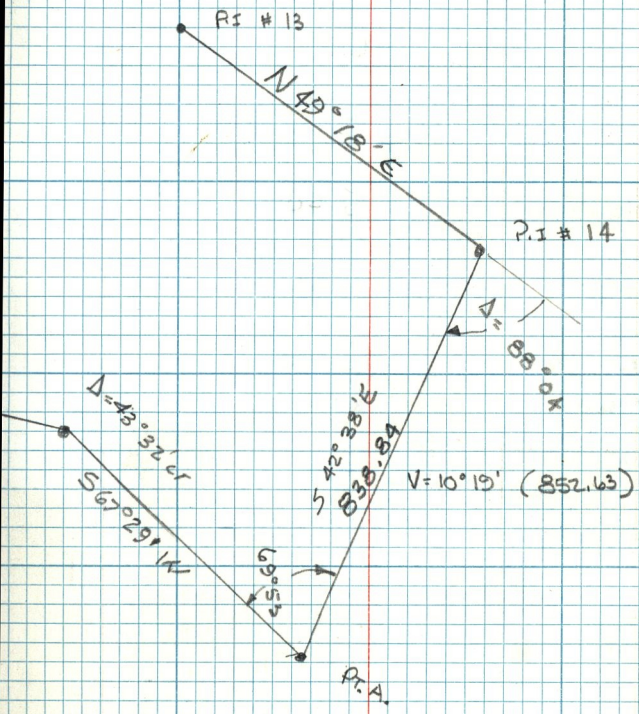 P.I # 13
N 49° 18' E
P.I # 14
Δ = 88° 04
Δ=43°32'
S 42° 38' E
838.84
V = 10° 19' (852.63)
S 67° 29' W
69°53
PT. A.